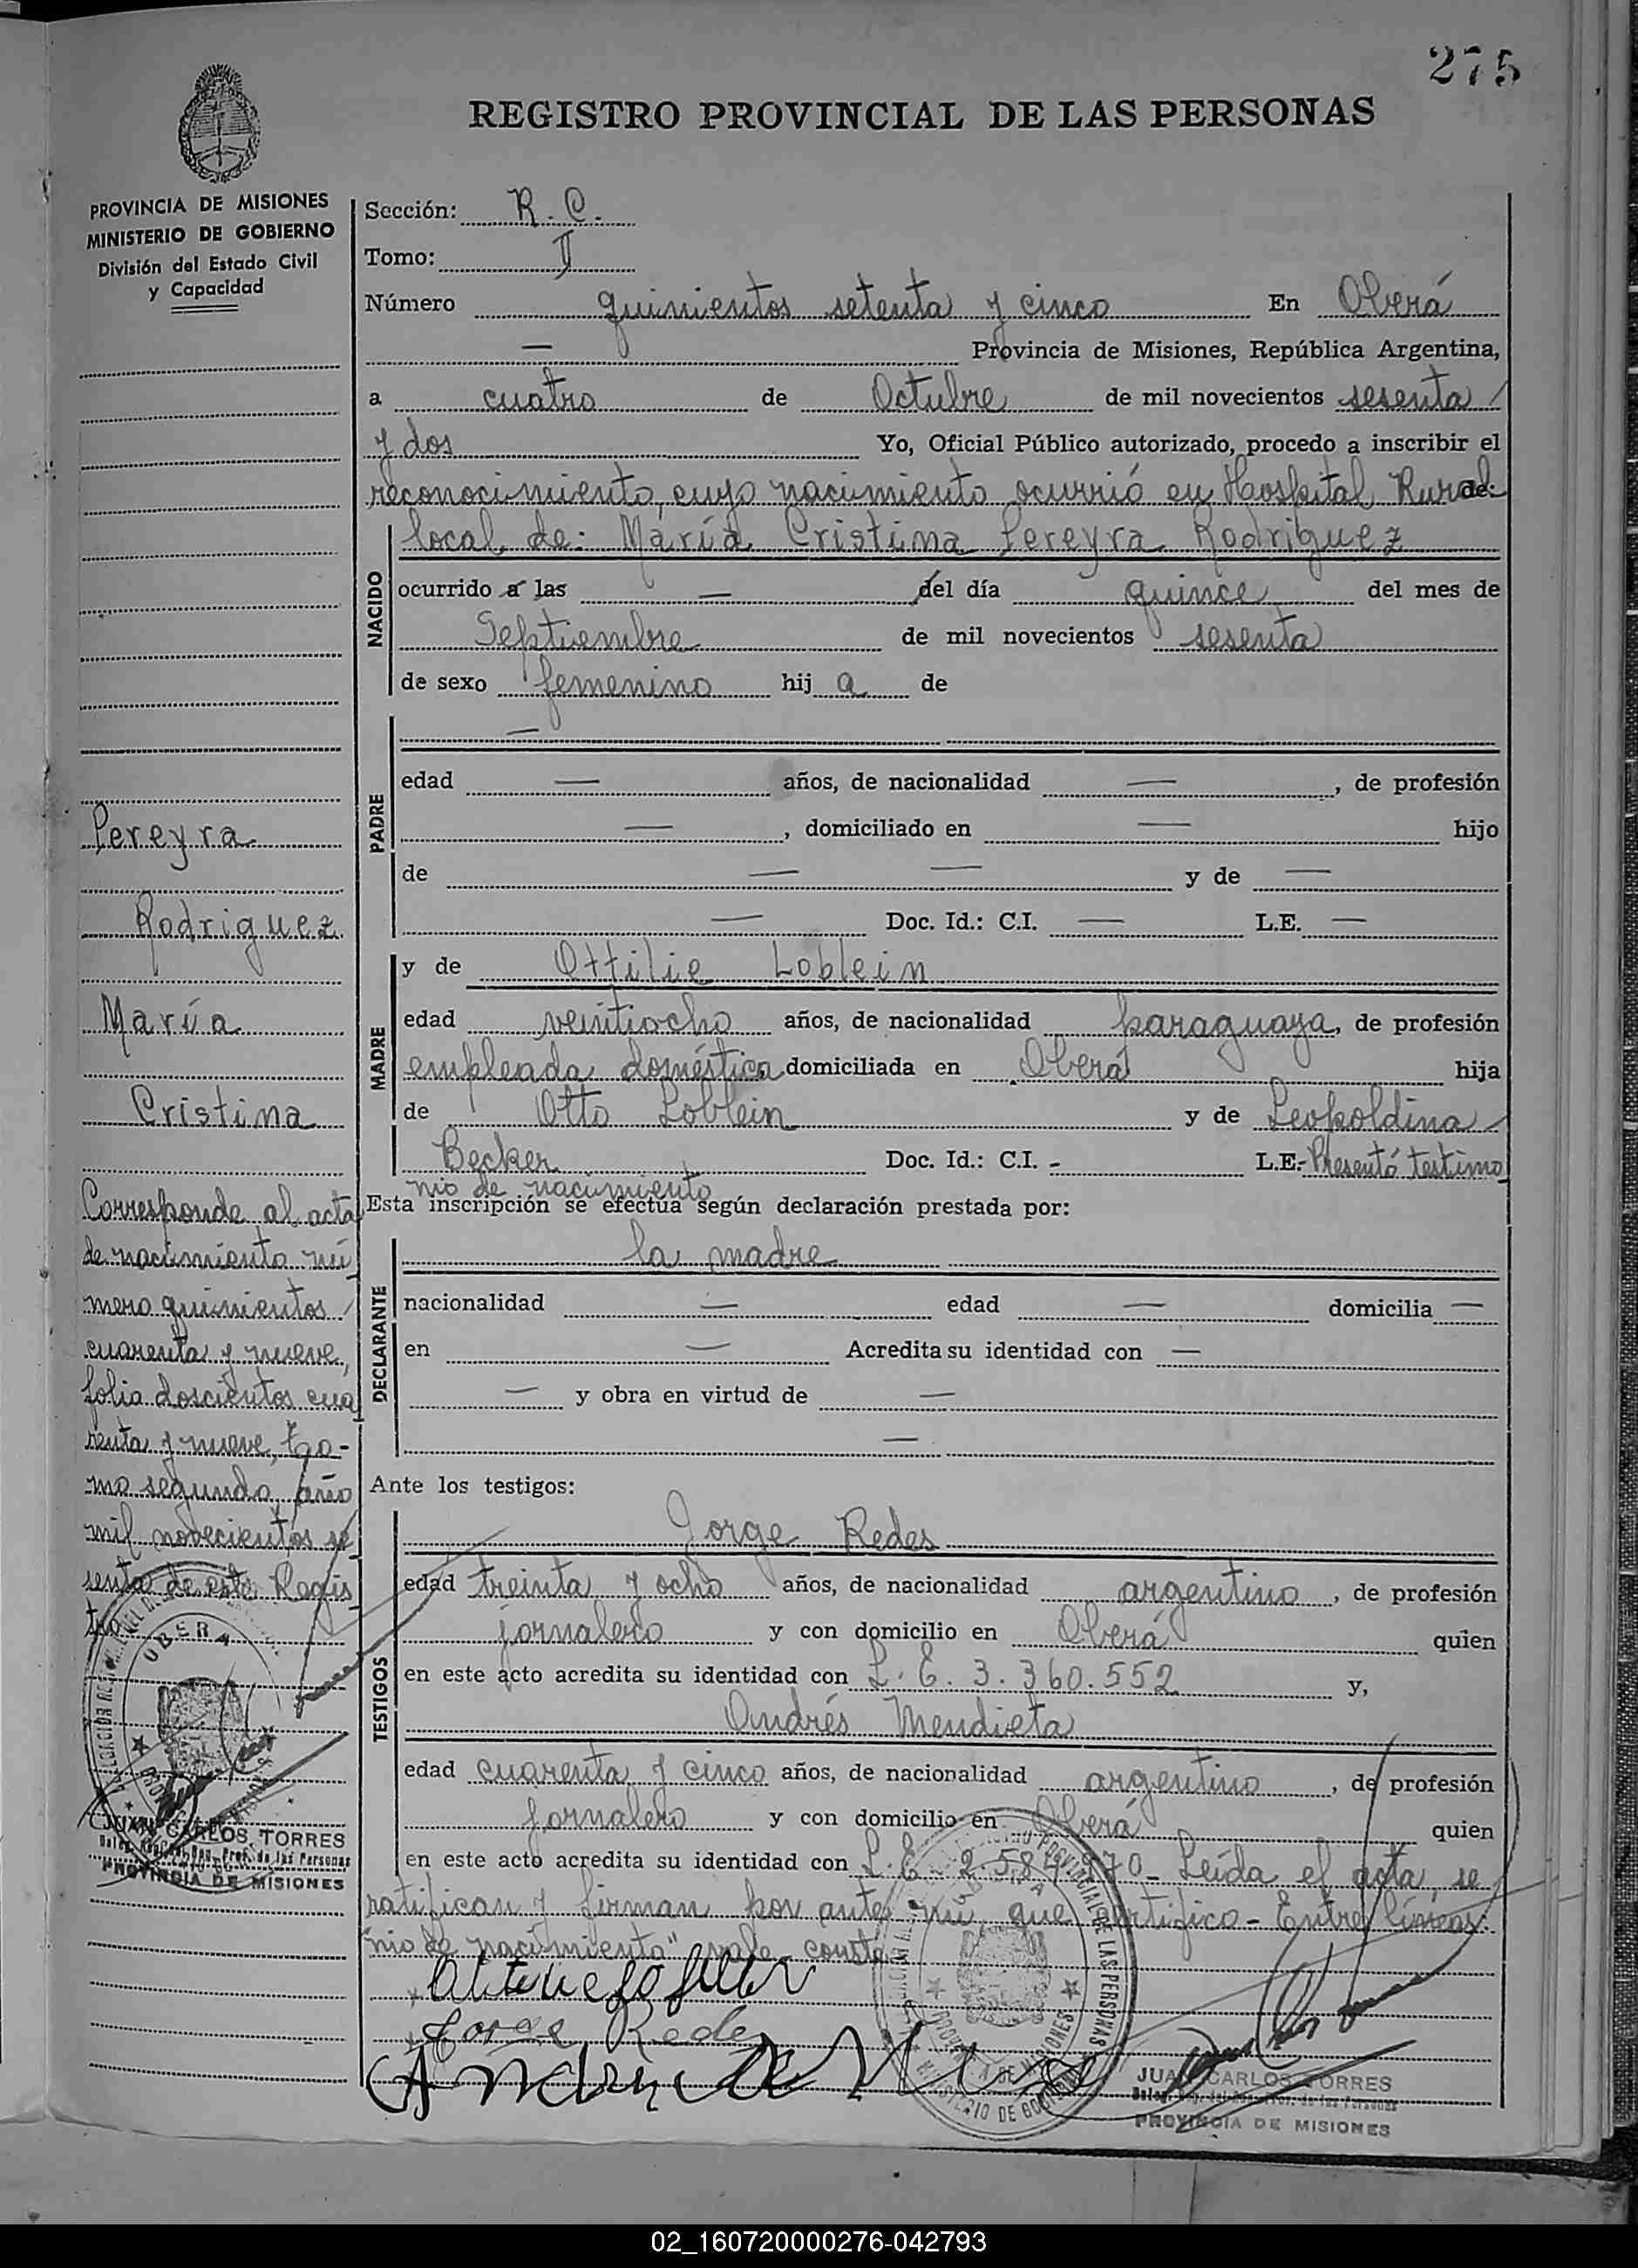 275
REGISTRO PROVINCIAL DE LAS PERSONAS
PROVINCIA DE MISIONES
MINISTERIO DE GOBIERNO
División del Estado Civil
y Capacidad
Pereyra
Rodriguez
María
Cristina
Corresponde al acta
de nacimiento nú
mero quinientos
cuarenta y nueve,
folio doscientos cua
renta y nueve, to-
mo segundo, año
mil novecientos se
senta de este Regis
tro
OBERA
JUAN CARLOS TORRES
PROVINCIA DE MISIONES
Sección: R. C.
Tomo: II
Número quinientos setenta y cinco En Oberá
— Provincia de Misiones, República Argentina,
a cuatro de Octubre de mil novecientos sesenta
y dos Yo, Oficial Público autorizado, procedo a inscribir el
reconocimiento, cuyo nacimiento ocurrió en Hospital Rural
local de: María Cristina Pereyra Rodriguez
NACIDO
ocurrido a las — del día quince del mes de
Septiembre de mil novecientos sesenta
de sexo femenino hij a de
PADRE
—
edad — años, de nacionalidad —, de profesión
—, domiciliado en — hijo
de — — y de —
— Doc. Id.: C.I. — L.E. —
MADRE
y de Ottilie Loblein
edad veintiocho años, de nacionalidad paraguaya, de profesión
empleada doméstica domiciliada en Oberá hija
de Otto Loblein y de Leopoldina
Becker Doc. Id.: C.I. - L.E.- Presentó testimo
nio de nacimiento
Esta inscripción se efectúa según declaración prestada por:
DECLARANTE
la madre
nacionalidad — edad — domicilia —
en — Acredita su identidad con —
— y obra en virtud de —
—
Ante los testigos:
TESTIGOS
Jorge Redes
edad treinta y ocho años, de nacionalidad argentino, de profesión
jornalero y con domicilio en Oberá quien
en este acto acredita su identidad con L. E. 3. 360. 552 y,
Andrés Mendieta
edad cuarenta y cinco años, de nacionalidad argentino, de profesión
jornalero y con domicilio en Oberá quien
en este acto acredita su identidad con L. E. Leída el acta, se
ratifican y firman por ante mí, que certifico - Entre líneas:
"nio de nacimiento" vale - conste
Jorge Redes
JUAN CARLOS TORRES
PROVINCIA DE MISIONES
02_160720000276-042793